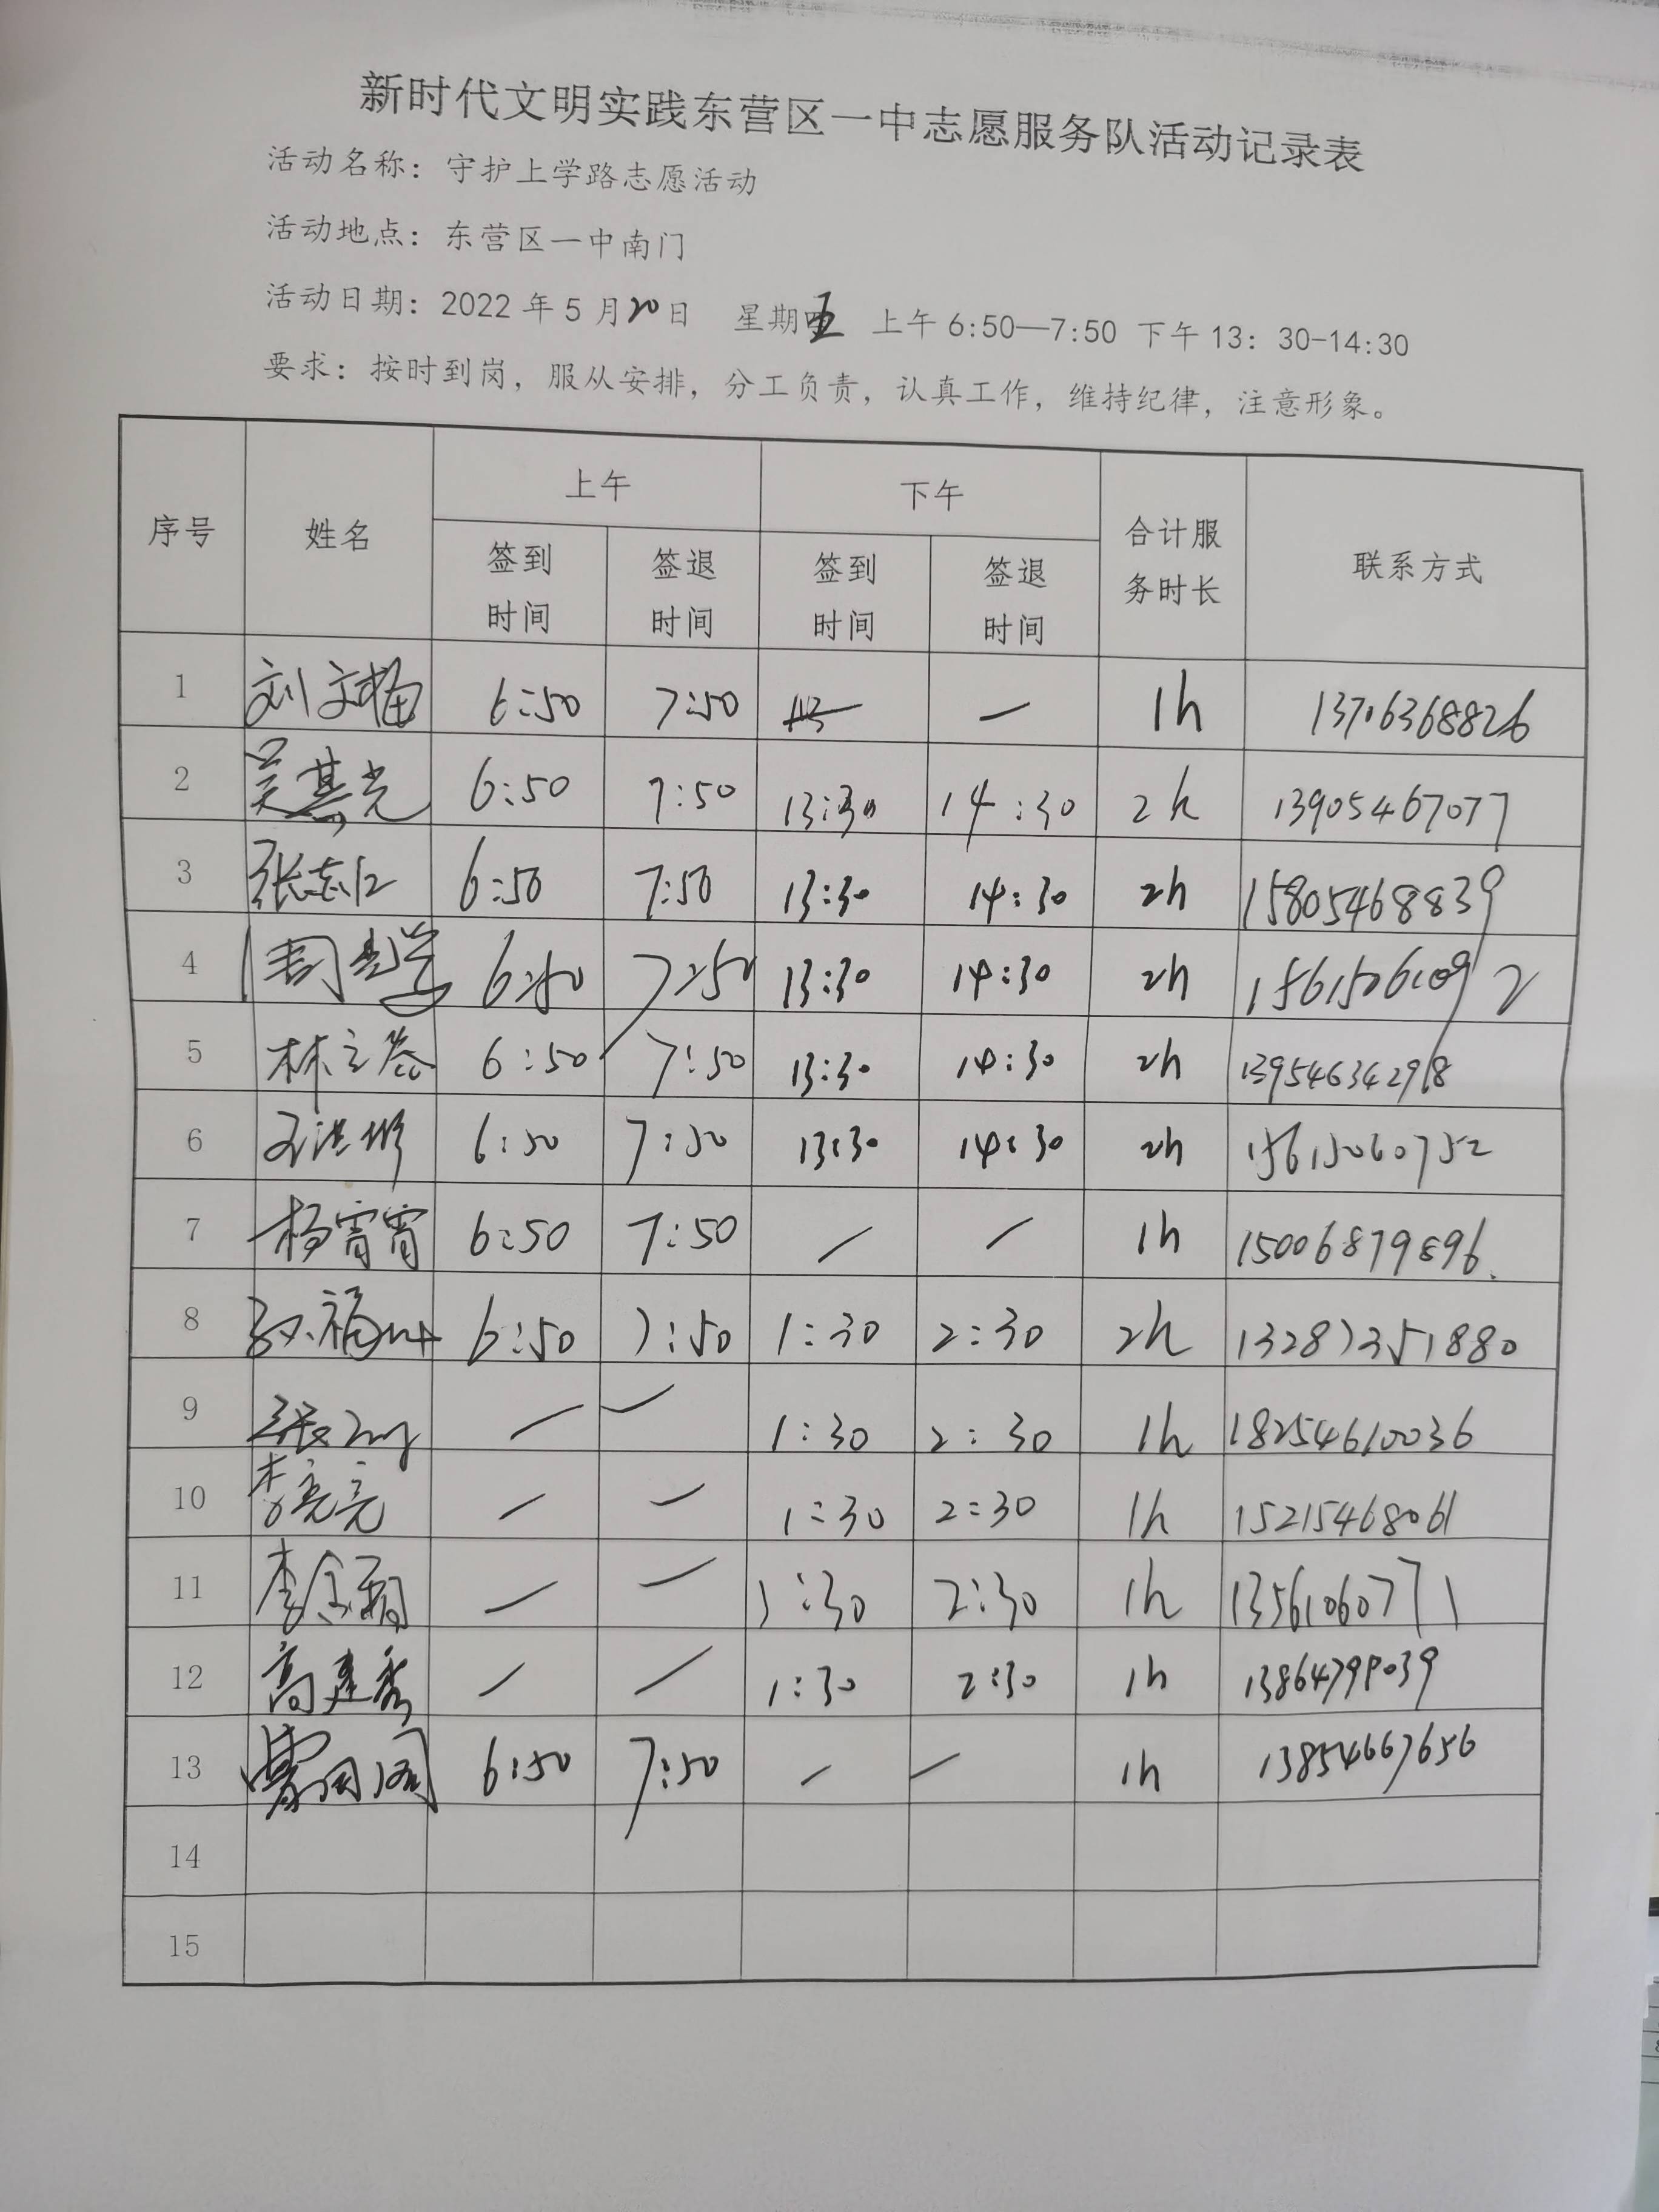 新时代文明实践东营区一中志愿服务队活动记录表
活动名称：守护上学路志愿活动
活动地点：东营区一中南门
活动日期：2022年5月20日 星期五 上午6:50—7:50 下午13：30-14:30
要求：按时到岗，服从安排，分工负责，认真工作，维持纪律，注意形象。
序号 姓名 上午 下午 合计服务时长 联系方式
签到时间 签退时间 签到时间 签退时间
1 刘文梅 6:50 7:50 — 1h 13706368826
2 吴基光 6:50 7:50 13:30 14:30 2h 13905467077
3 张志江 6:50 7:50 13:30 14:30 2h 15805468839
4 6:50 7:50 13:30 14:30 2h 15615061092
5 林立叁 6:50 7:50 13:30 14:30 2h 13954634298
6 6:50 7:50 13:30 14:30 2h 15615060752
7 杨霄霄 6:50 7:50 / / 1h 15006879896.
8 6:50 7:50 1:30 2:30 2h 13287351880
9 — — 1:30 2:30 1h 18254610036
10 李亮亮 — — 1:30 2:30 1h 15215468061
11 — — 1:30 2:30 1h 13561060771
12 高建秀 / / 1:30 2:30 1h 13864799039
13 6:50 7:50 — — 1h 13854667656
14
15